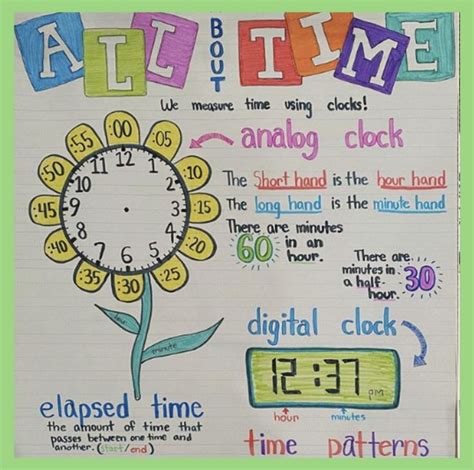 ALL BOUT TIME
We measure time using clocks!
analog clock
:00 :05 :15 :20 :25 :30 :35 :40 :45 :50 :55
12 11 10 9 8 7 6 5 4 3 2 1
The short hand is the hour hand
The long hand is the minute hand
There are minutes
60 in an
hour.
There are
minutes in 30
a half-
hour.
hour
minute
digital clock
12:37 PM
hour minutes
elapsed time
the amount of time that
passes between one time and
another. (start/end)
time patterns